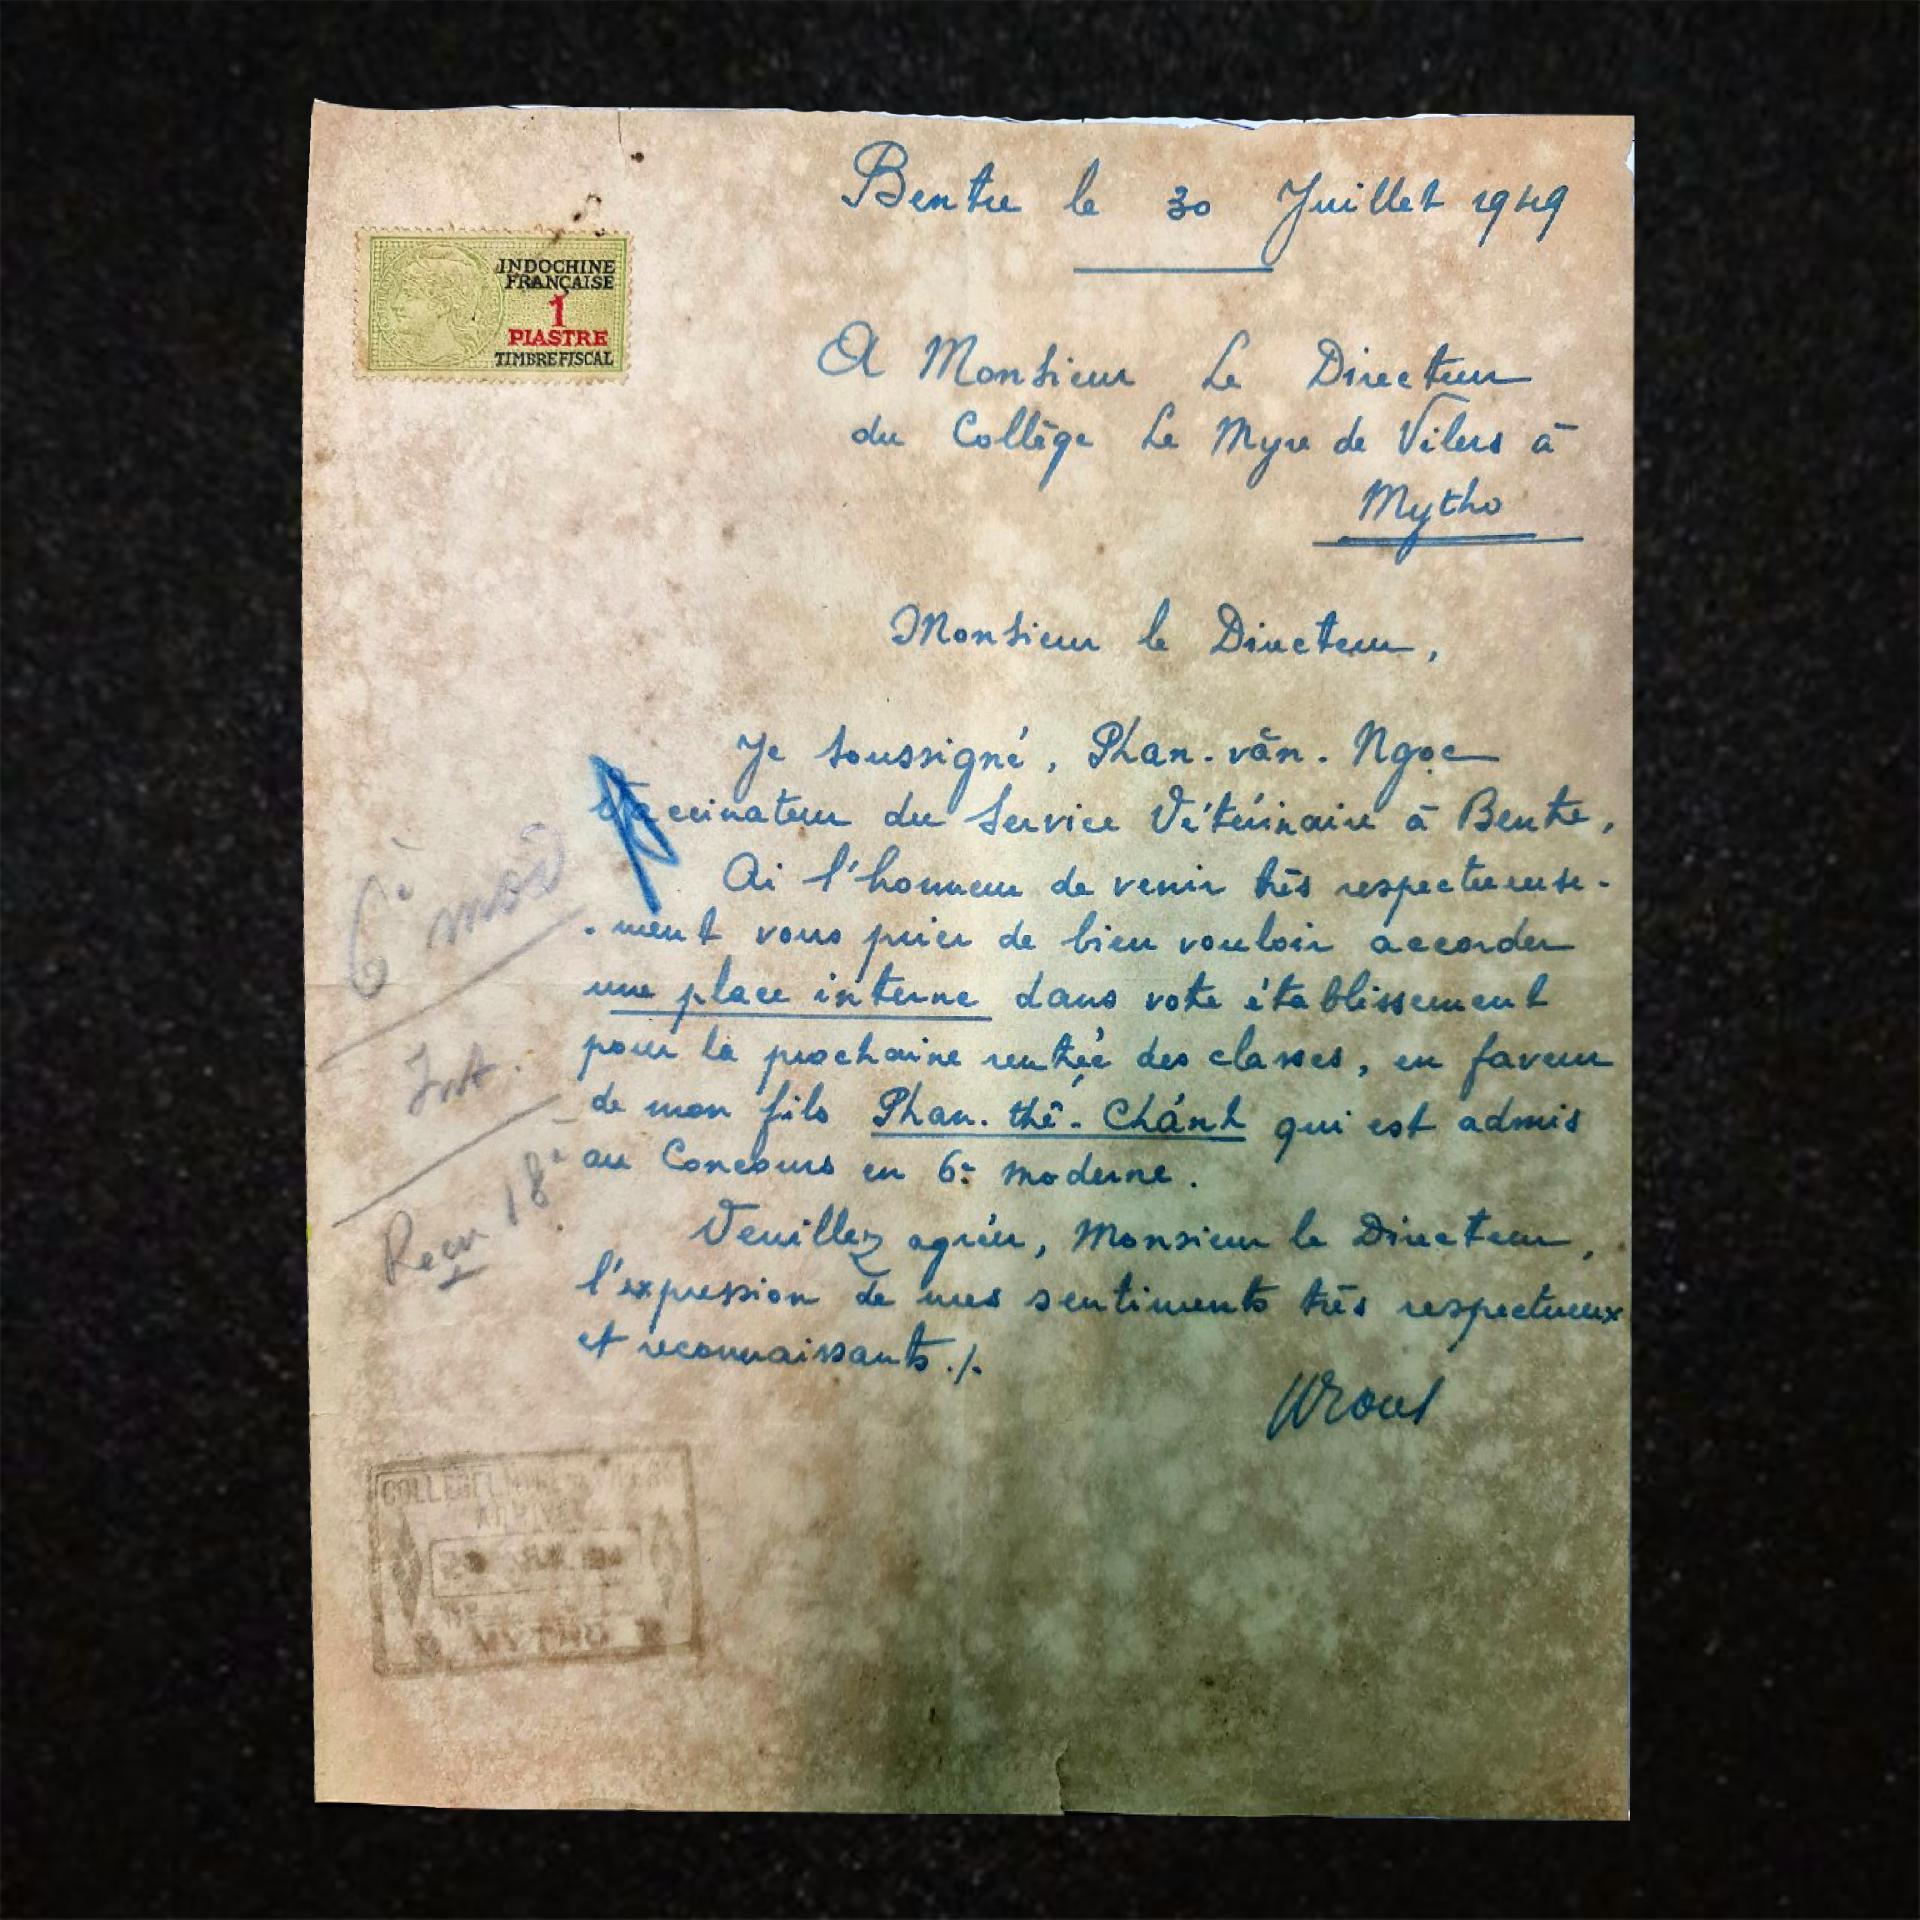 Bentre le 30 Juillet 1949
INDOCHINE
FRANÇAISE
1
PIASTRE
TIMBRE FISCAL
A Monsieur Le Directeur
du Collège Le Myre de Vilers à
Mytho
Monsieur le Directeur,
Je soussigné, Phan-văn-Ngọc
Vaccinateur du Service Vétérinaire à Bentre,
Ai l'honneur de venir très respectueuse-
-ment vous prier de bien vouloir accorder
une place interne dans votre établissement
pour la prochaine rentrée des classes, en faveur
de mon fils Phan-thê-Chánh qui est admis
au Concours en 6è moderne.
Veuillez agréer, Monsieur le Directeur,
l'expression de mes sentiments très respectueux
et reconnaissants./.
6è mod
Int.
Reçu 18è
COLLEGE